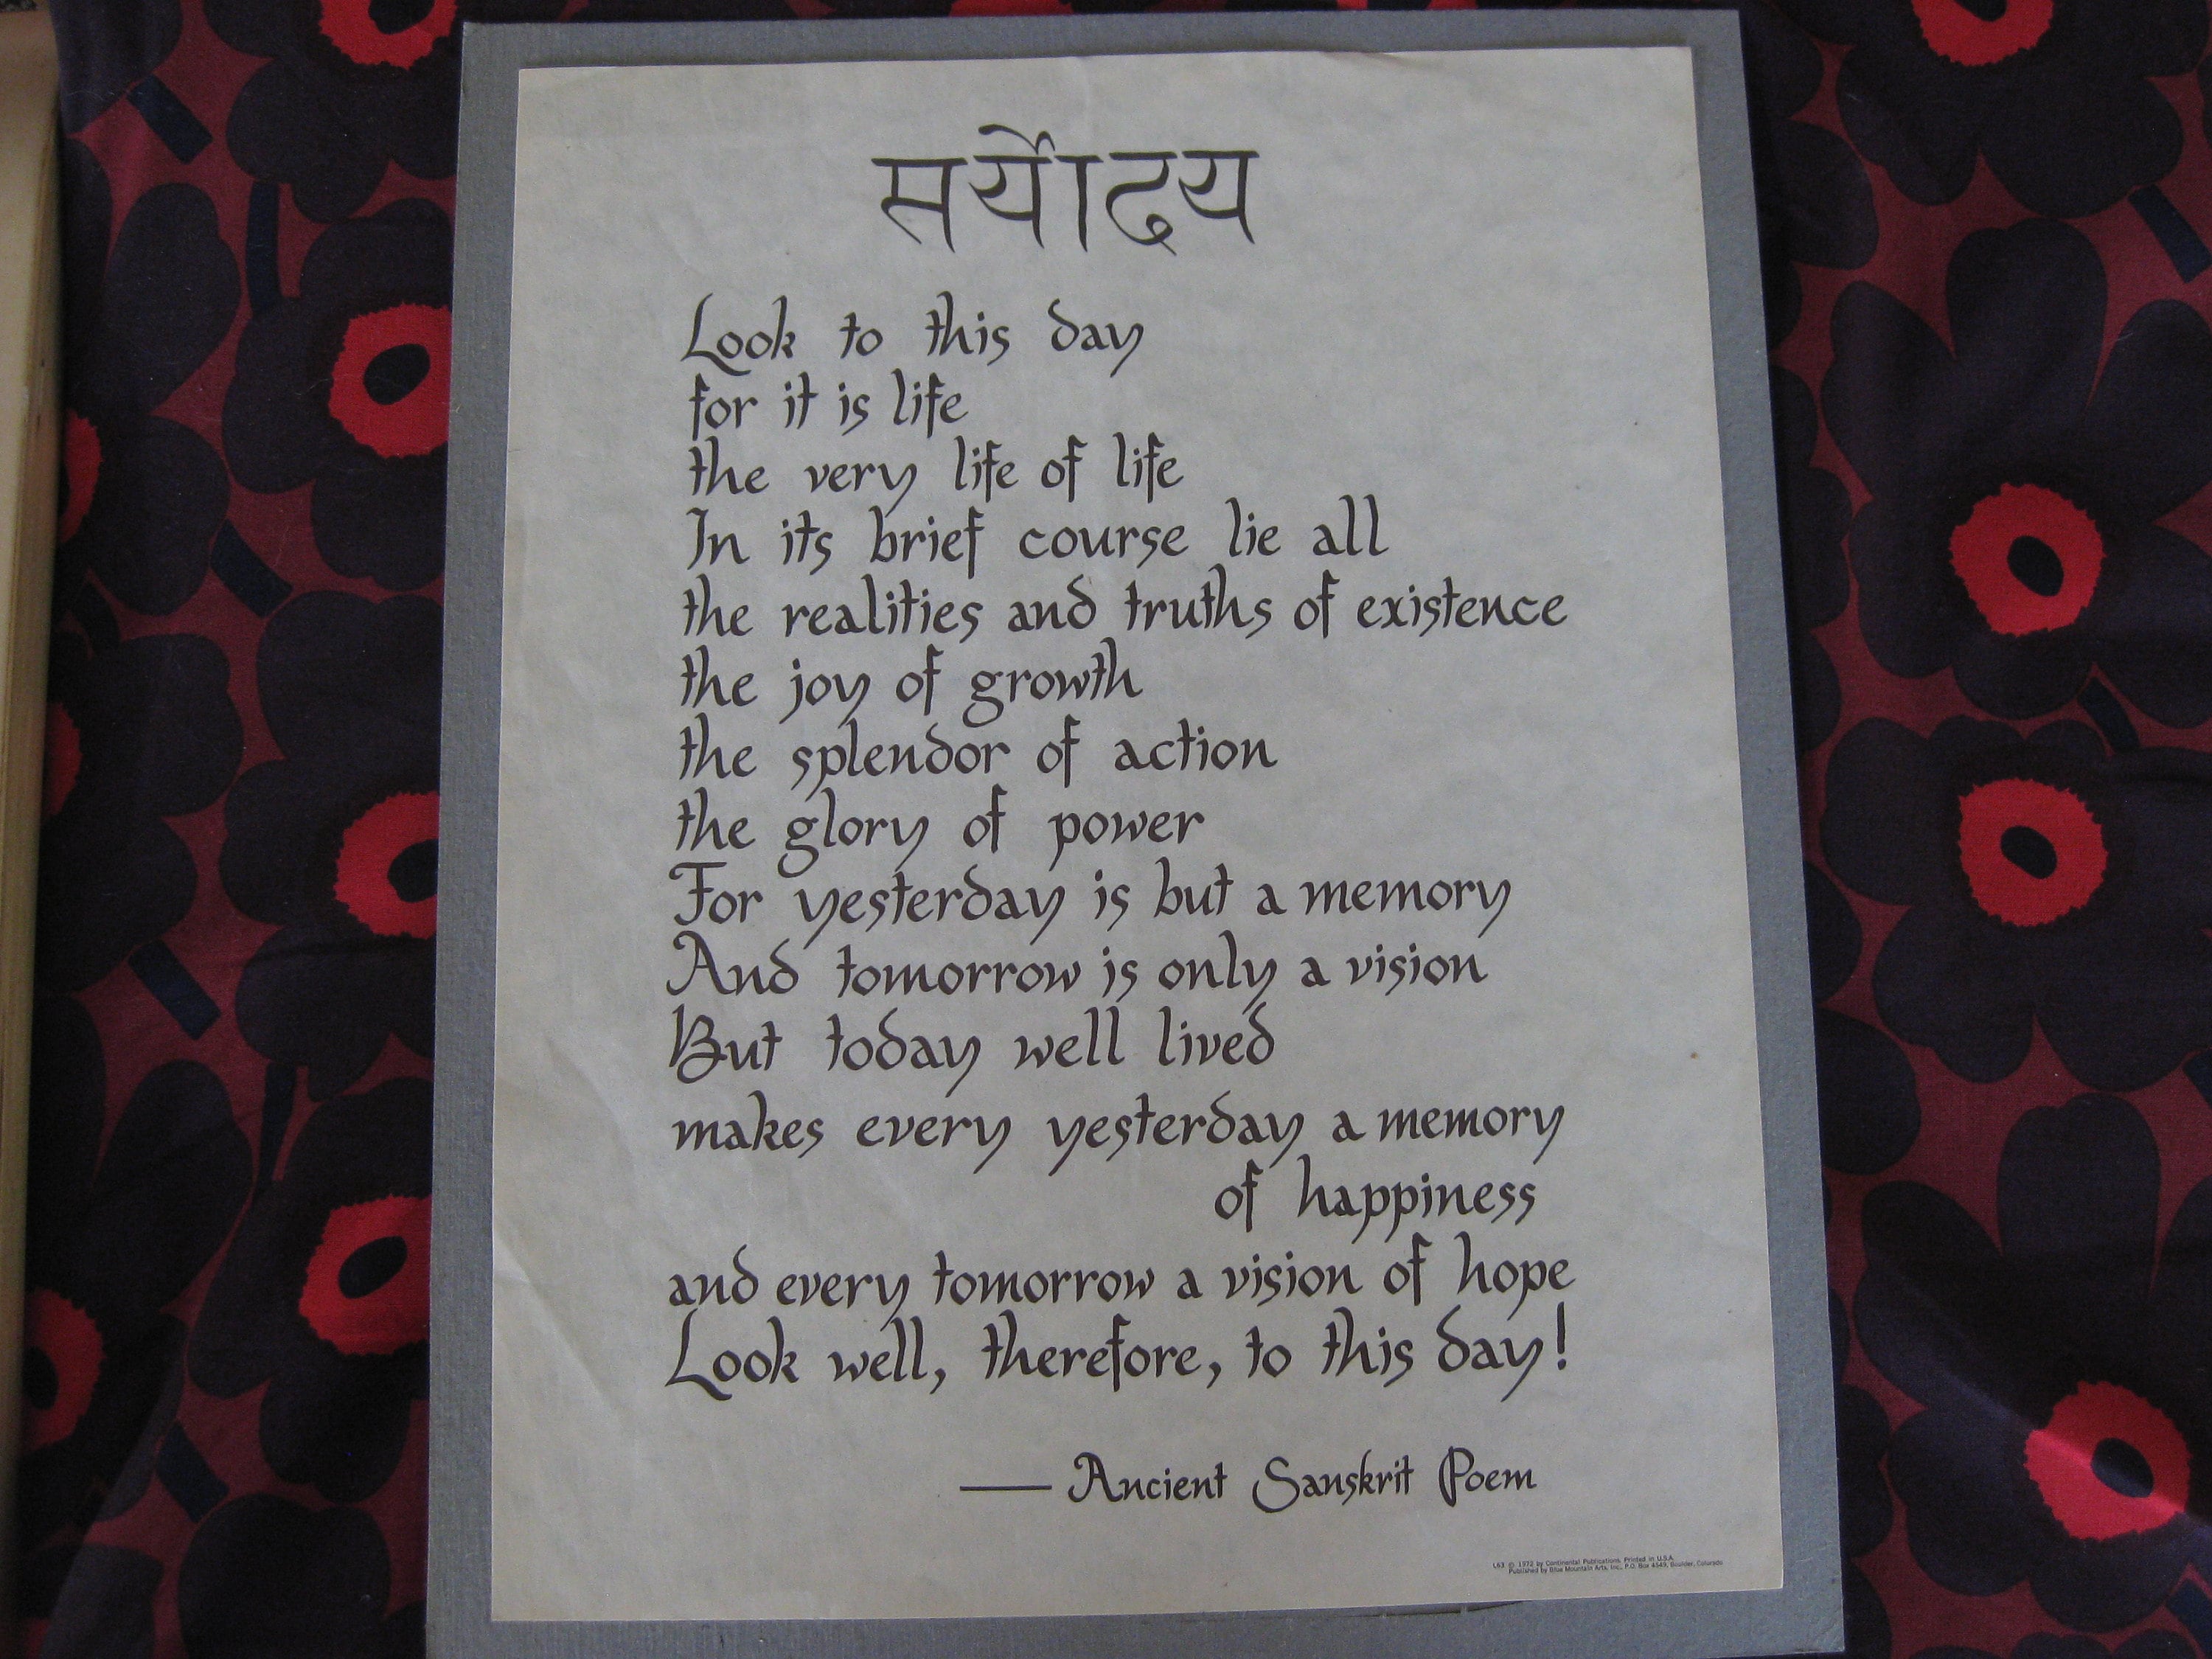 सर्योदय
Look to this day
for it is life
the very life of life
In its brief course lie all
the realities and truths of existence
the joy of growth
the splendor of action
the glory of power
For yesterday is but a memory
And tomorrow is only a vision
But today well lived
makes every yesterday a memory
of happiness
and every tomorrow a vision of hope
Look well, therefore, to this day!
— Ancient Sanskrit Poem
L63 © 1972 by Continental Publications. Printed in U.S.A.
Published by Blue Mountain Arts, Inc., P.O. Box 4549, Boulder, Colorado